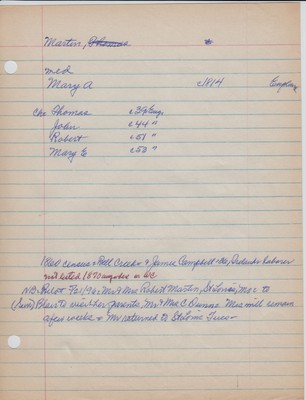 Martin, Thomas *
med
Mary A c1814 England
Chn Thomas c39 Eng.
John c44 "
Robert c51 "
Mary E c53 "
1860 census - Mill Creek - & James Campbell - laborer
not listed 1870 anywhere in WC
N.B. Robt 7/21/96: Mr & Mrs Robert Martin, St Louis, Mo - to
(Jean) Blair to visit her parents, Mr & Mrs C Dunne Mrs M will remain
a few weeks & Mr returned to St Louis Tues -